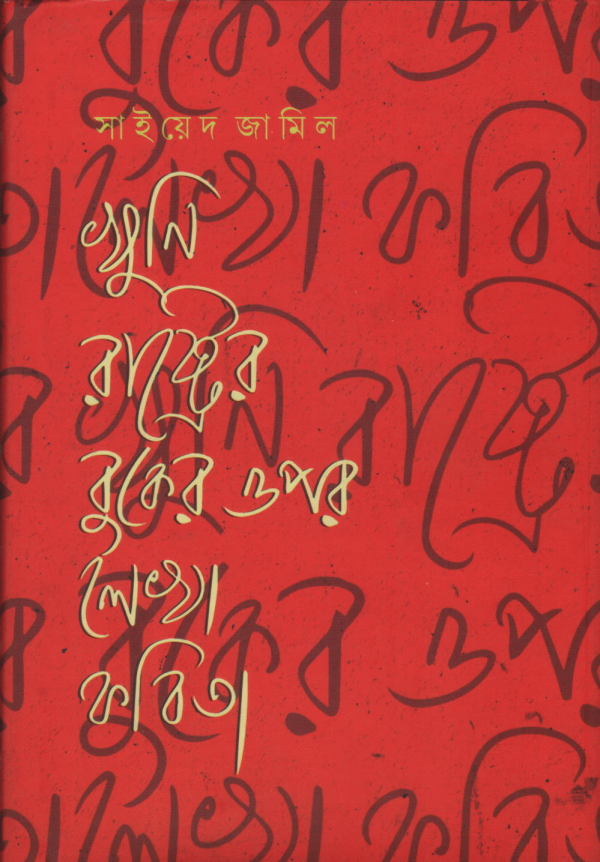 সাইয়েদ জামিল
খুনি
রাষ্ট্রের
বুকের ওপর
লেখা
কবিতা